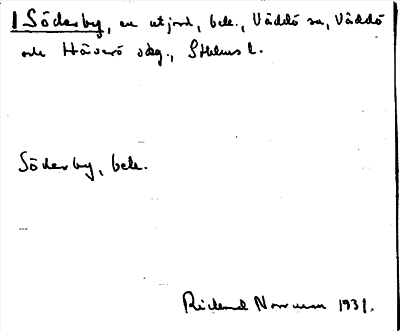 1 Söderby, en utjord, bek., Väddö sn, Väddö
och Häverö skg., Sthlms l.
Söderby, bek.
Rickard Norrman 1931.